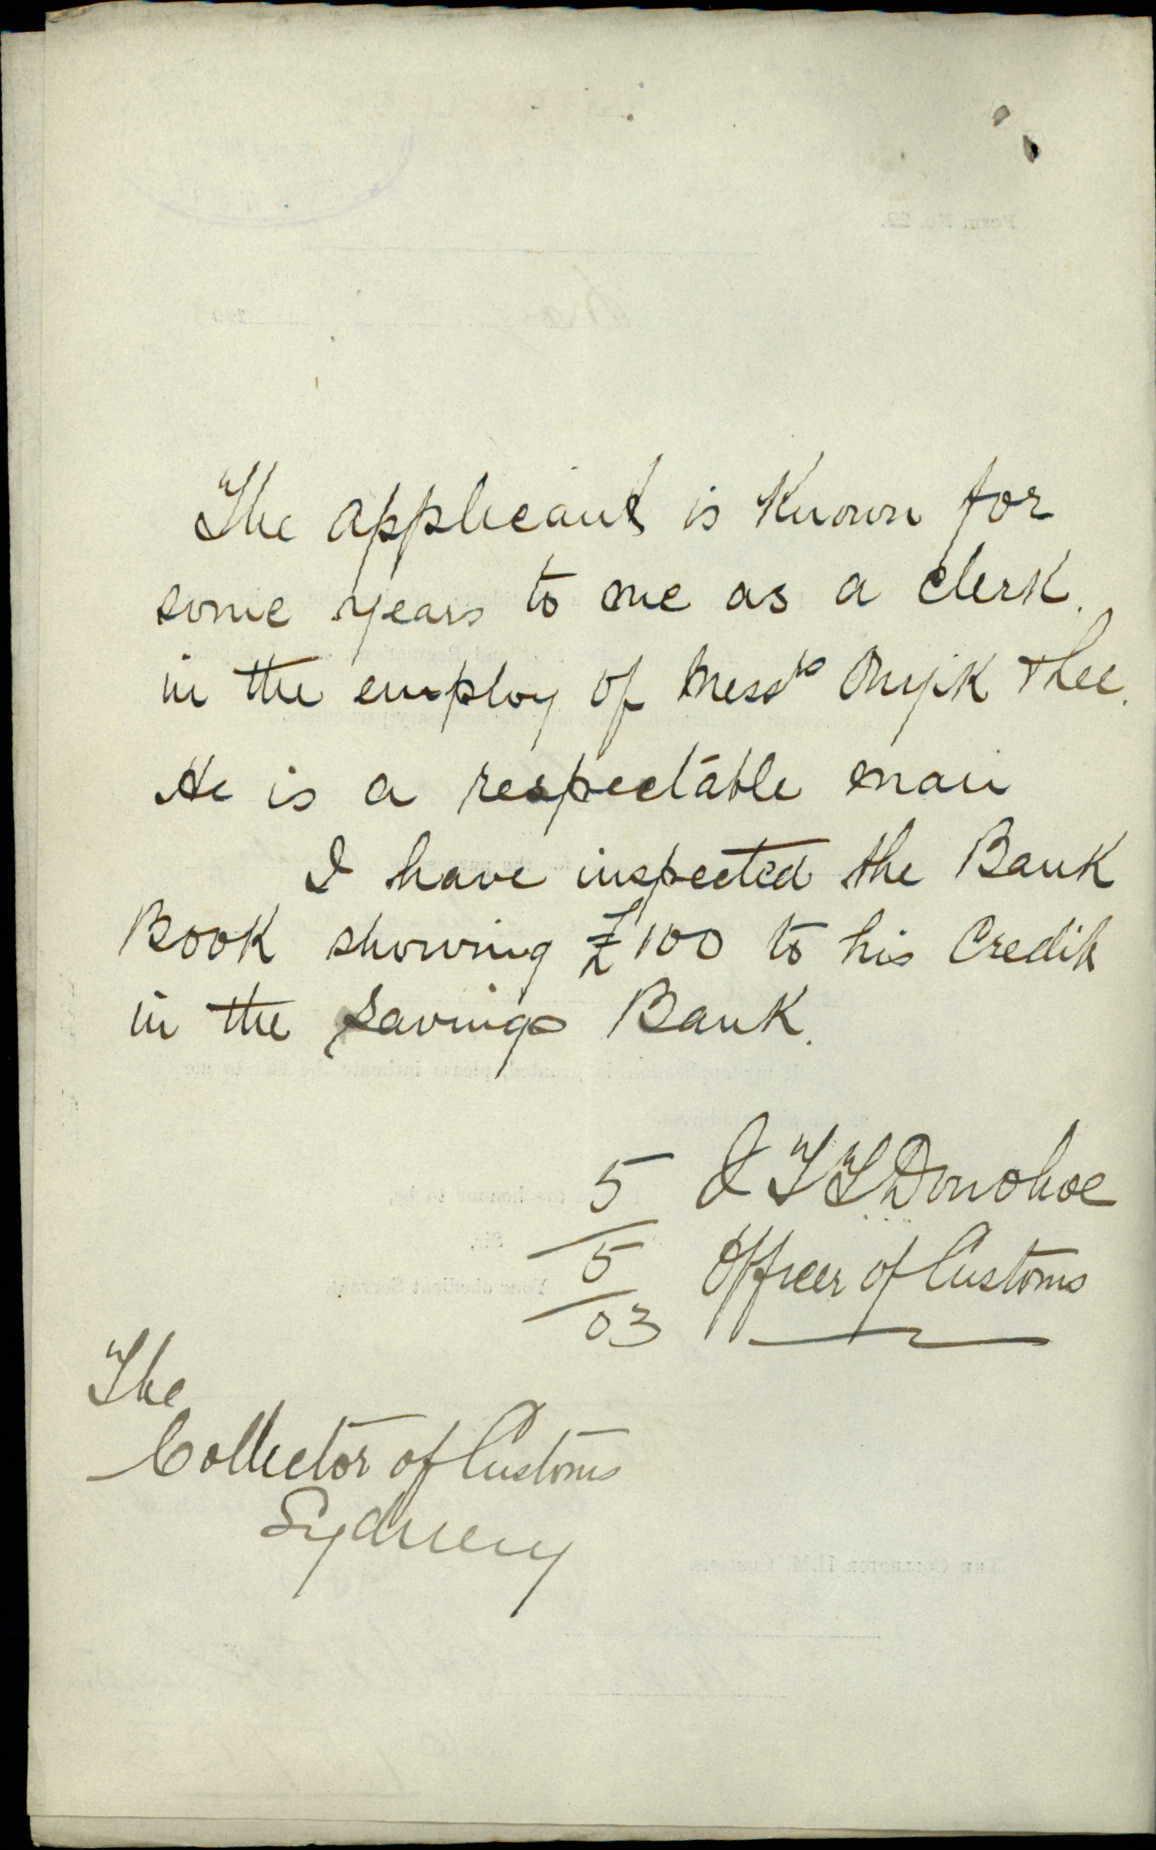 The applicant is Known for
some years to me as a clerk.
in the employ of Messrs Onyik & Lee.
He is a respectable man
I have inspected the Bank
Book showing £100 to his Credit
in the Savings Bank.
5 J T T Donohoe
5 Officer of Customs
03
The
Collector of Customs
Sydney